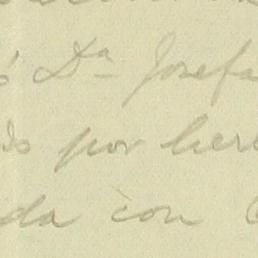 ó Dª Josefa
por here
da con